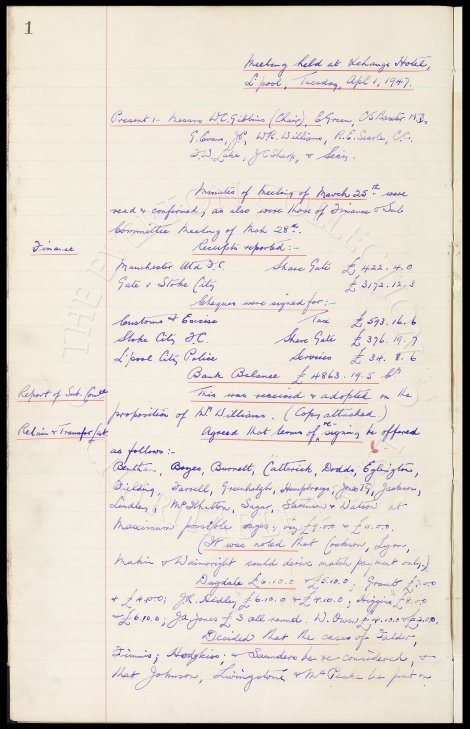 1
Meeting held at Exchange Hotel,
L'pool, Tuesday, Apl 1, 1947.
Present :- Messrs W.C. Gibbins (Chair), E. Green, C.S. Baxter M.D.,
G. Evans, J.P., W.R. Williams, R.E. Searle, C.C.
T.W. J.C. Sharp, & Secy.
Minutes of Meeting of March 25th were
read & confirmed, as also were those of Finance & Sub
Committee Meeting of Mch. 28th.
Finance
Receipts reported:-
Manchester Utd. F.C. Share Gate £422.4.0
Gate v Stoke City £3172.12.3
Cheques were signed for:-
Customs & Excise Tax £593.16.6
Stoke City F.C. Share Gate £376.19.7
L'pool City Police Services £34.8.6
Bank Balance £4863.19.5
Report of Sub. Comtee
This was received & adopted on the
proposition of Mr Williams. (Copy attached.)
Retain & Transfer list
Agreed that terms of re signing be offered
as follows:-
Bentham, Boyes, Burnett, Catterick, Dodds, Eglington,
Fielding, Farrell, Greenhalgh, Humphreys, Jones T.G., Jackson,
Lindley, McIlhatton, Sagar, Stevenson & Watson at
Maximum possible wages, £9.0.0 & £11.0.0.
(It was noted that Cookson, Lyon,
Makin & Wainwright could derive match payment only.)
Dugdale £6.10.0 & £5.10.0; Grant
& £4.0.0; J.R. Hedley £6.10.0 & £4.10.0; Higgins
& £6.10.0; J.A. Jones £3 all round. W. Owen £4.10.0 & £2.0.0.
Decided that the cases of Fielder,
Finnis, Hodgkiss & Saunders be re considered, &
that Johnson, Livingstone & McPeake be put on